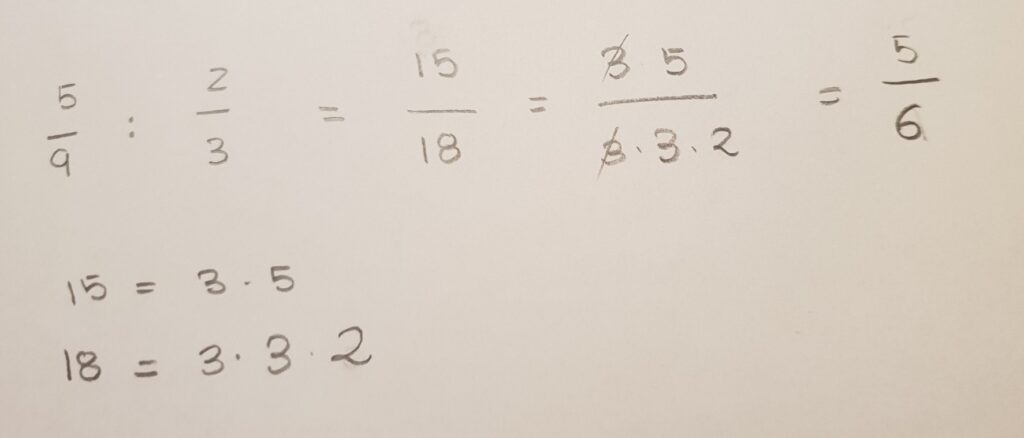 5/9 : 2/3 = 15/18 = 3 5/3·3·2 = 5/6
15 = 3·5
18 = 3·3·2